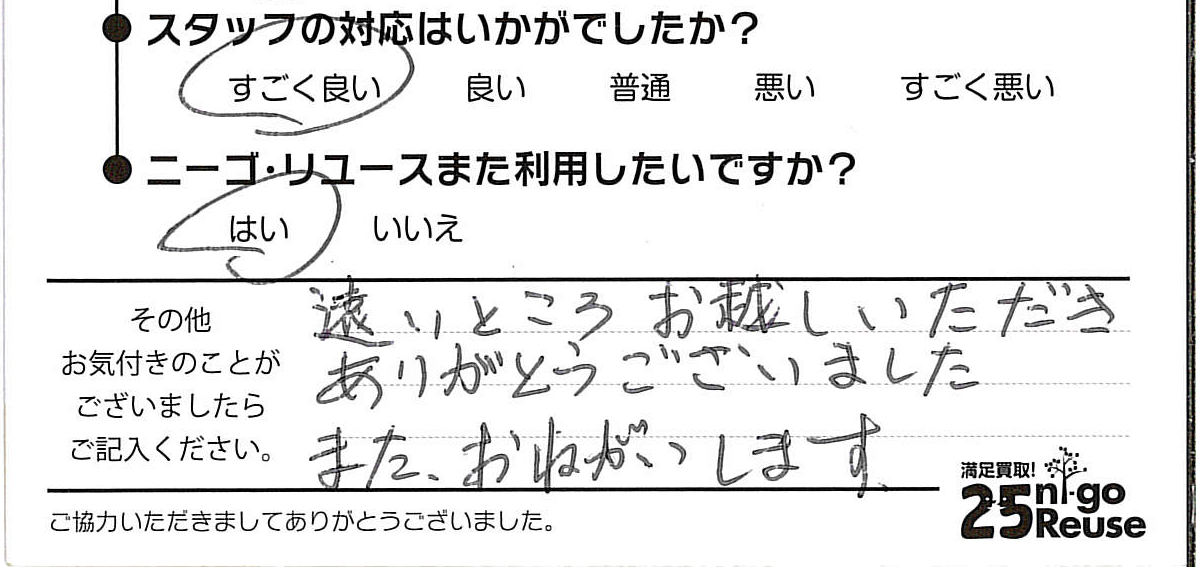 スタッフの対応はいかがでしたか?
すごく良い 良い 普通 悪い すごく悪い
ニーゴ・リユースまた利用したいですか?
はい いいえ
その他
お気付きのことが
ございましたら
ご記入ください。
遠いところお越しいただき
ありがとうございました
また、おねがいします。
満足買取!
25 ni-go
Reuse
ご協力いただきましてありがとうございました。